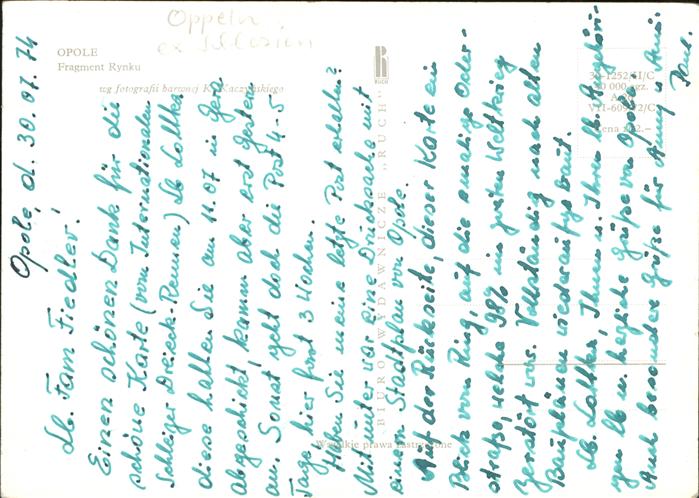 Oppeln
ex Silesien
OPOLE
Fragment Rynku
wg fotografii barwnej K. Kaczyńskiego
RUCH
BIURO WYDAWNICZE „RUCH"
Wszelkie prawa zastrzeżone
Opole, d. 30.07.74
Lb. Fam Fiedler!
Einen schönen Dank für die
schöne Karte (vom Internationalen
Schleizer Dreieck-Rennen) Lb Lothar
diese hatten Sie am 11.07 in Gera
abgeschickt, kamm aber erst gestern
an. Sonst geht doch die Post 4-5
Tage, hier fast 3 Wochen.
Haben Sie meine letzte Post erhalten?
Mit unter war eine Drücksache mit
einen Stadtplan von Opole.
Auf der Rückseite, dieser Karte ein
Blick vom Ring, auf die ematige Oder-
straße, welche 98% im zweiten Weltkrieg
Zerstört war. Vollständig nach alten
Bauplänen wiederaufgebaut.
Lb. Lothar, Ihnen u. Ihren lb. Angehöri-
gen lb u. herzliche Grüße von Opole
Auch besonder Grüße für Anny u Ani.
Paul.